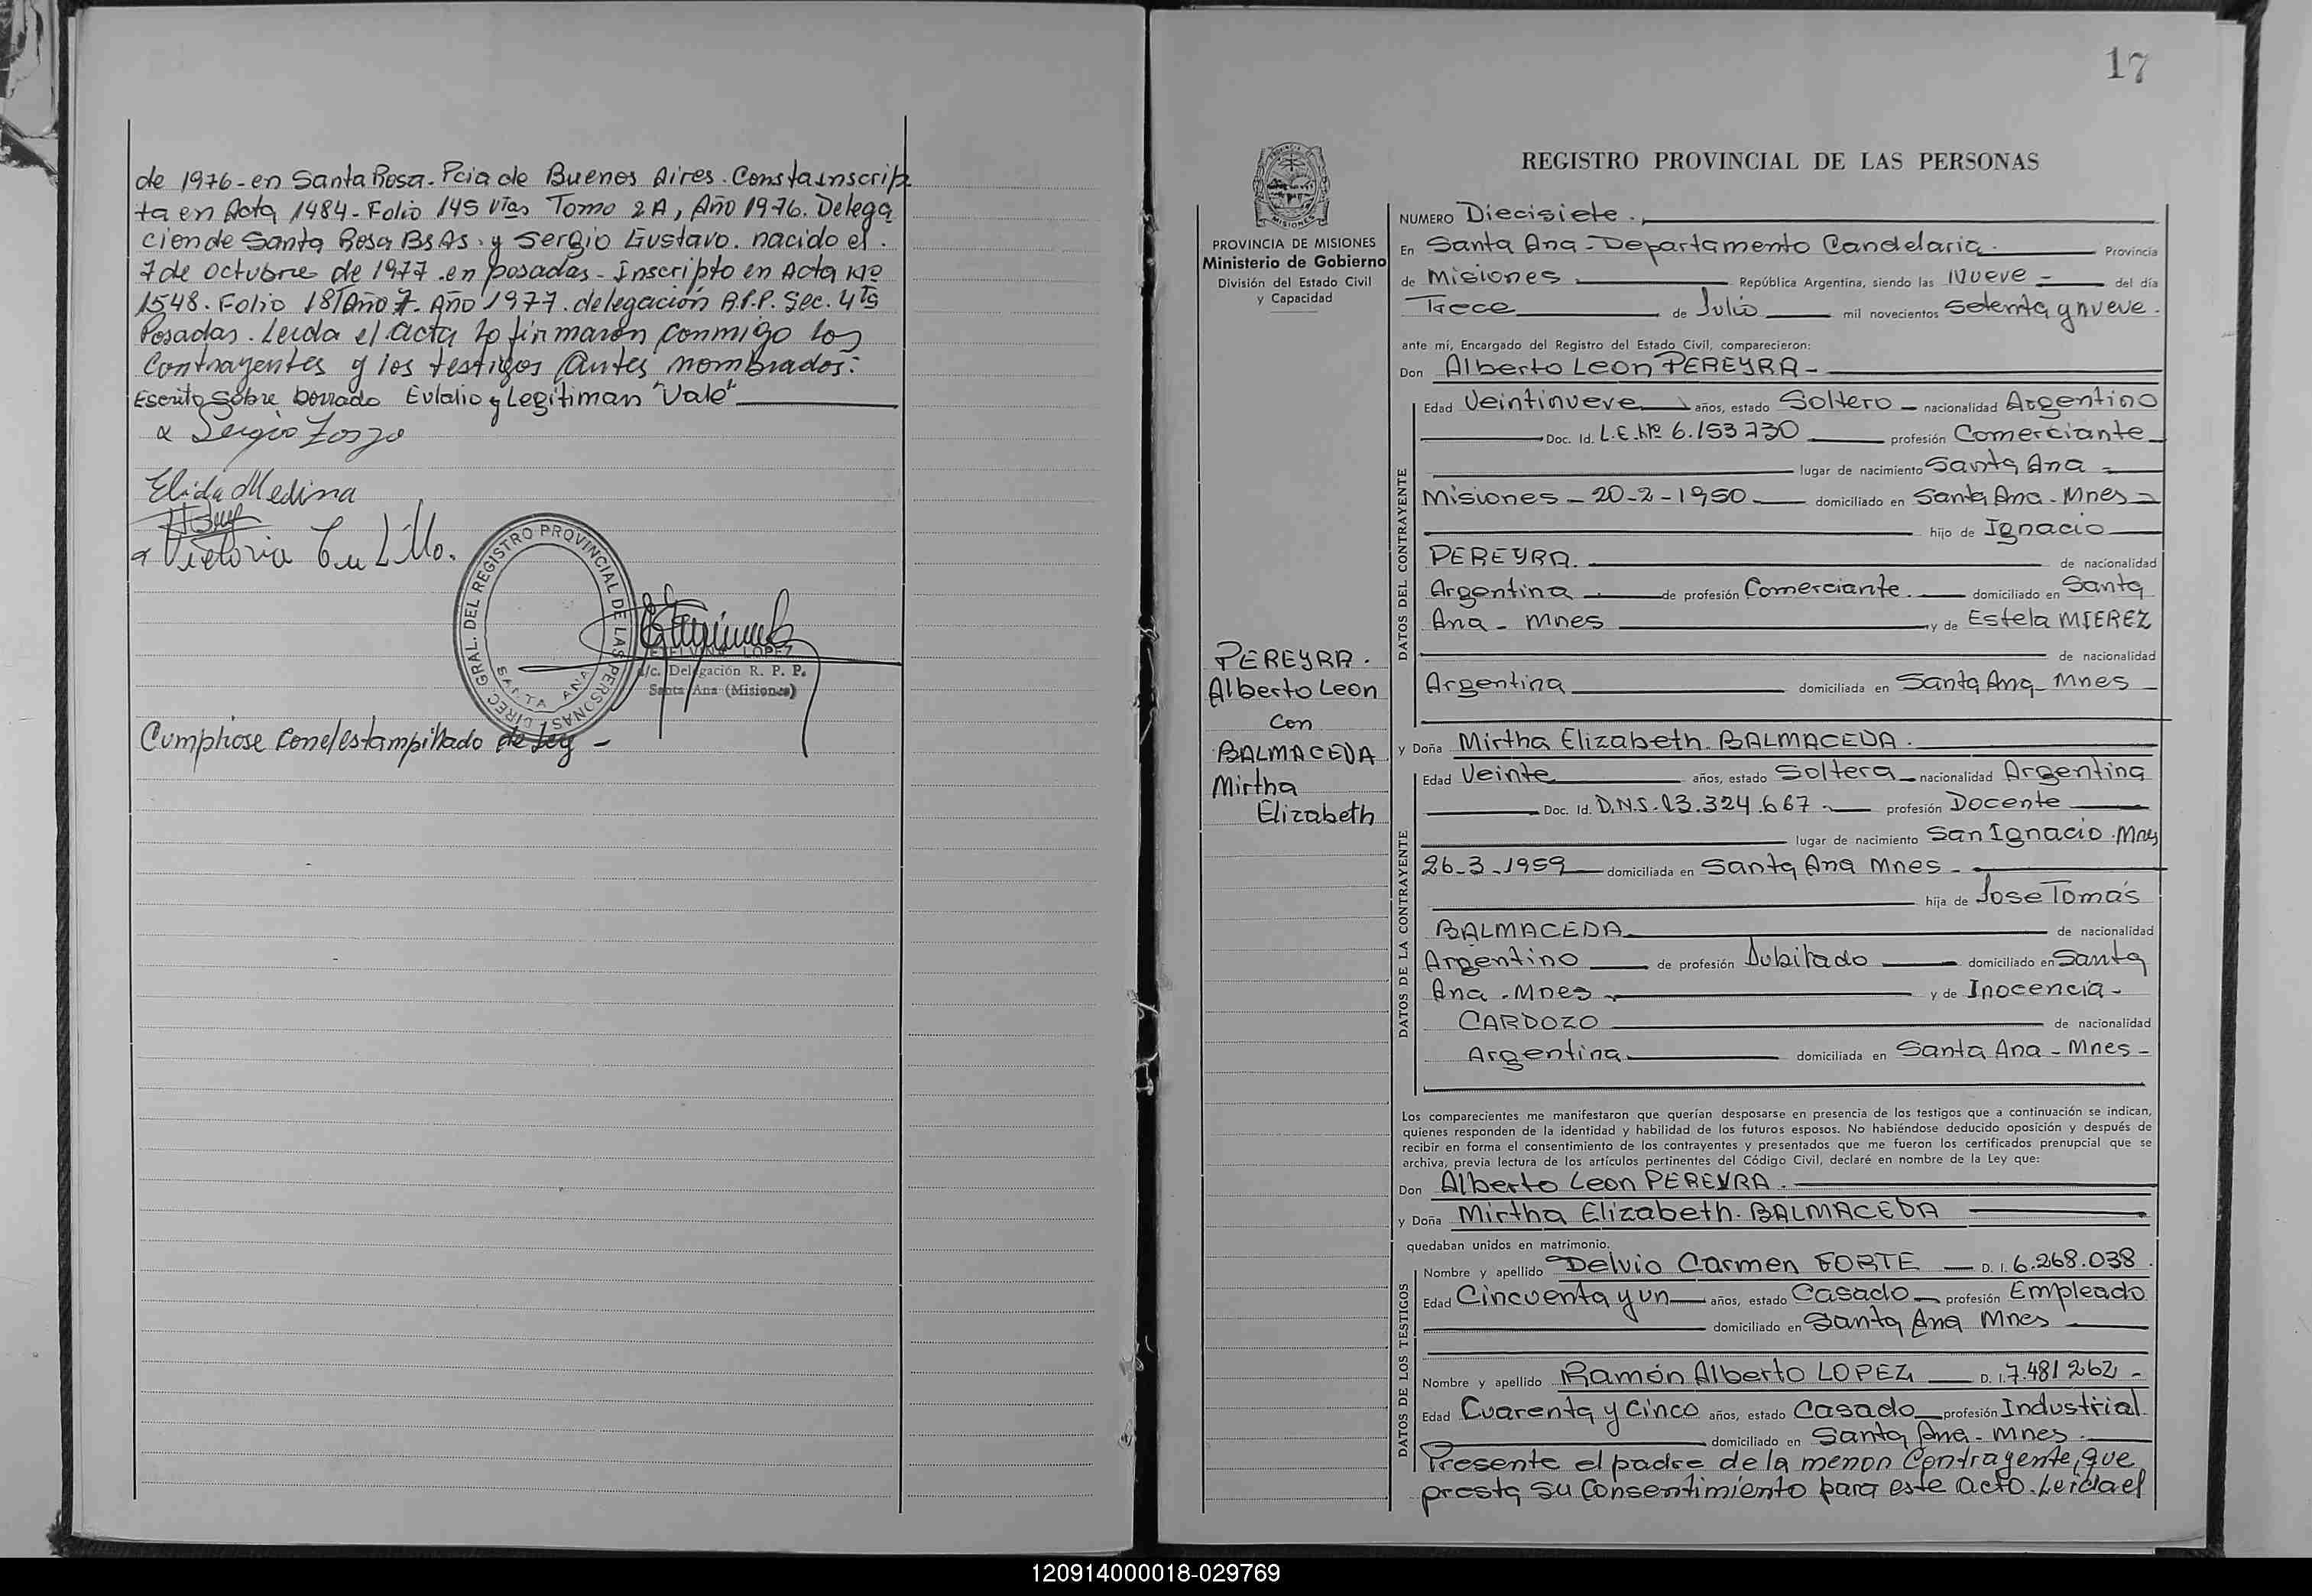 de 1976-en Santa Rosa-Pcia de Buenos Aires. Consta inscrip
ta en Acta 1484-Folio 145 Vtas Tomo 2A, Año 1976. Delega
cion de Santa Rosa BsAs. y Sergio Gustavo. nacido el.
7 de octubre de 1977.en posadas-Inscripto en Acta Nº
1548. Folio 181 Año 7. Año 1977. delegación R.P.P. Sec. 4ta
Posadas. Leída el acta lo firmaron conmigo los
Contrayentes y los testigos antes nombrados:
Escrito sobre borrado Eulalio y Legitiman "Vale"
Elida Medina
Victoria
DIREC. GRAL. DEL REGISTRO PROVINCIAL DE LAS PERSONAS
SANTA ANA
LOPEZ
a/c. Delegación R. P. P.
Santa Ana (Misiones)
Cumpliose con el estampillado de Ley -
17
PROVINCIA DE MISIONES
Ministerio de Gobierno
División del Estado Civil
y Capacidad
PEREYRA.
Alberto Leon
Con
BALMACEDA
Mirtha
Elizabeth
REGISTRO PROVINCIAL DE LAS PERSONAS
NUMERO Diecisiete.
En Santa Ana-Departamento Candelaria. Provincia
de Misiones República Argentina, siendo las Nueve - del día
Trece de Julio mil novecientos Setenta y nueve.
ante mí, Encargado del Registro del Estado Civil, comparecieron:
Don Alberto Leon PEREYRA-
DATOS DEL CONTRAYENTE
Edad Veintinueve años, estado Soltero - nacionalidad Argentino
Doc. Id. L.E.Nº 6.153730 profesión Comerciante
lugar de nacimiento Santa Ana -
Misiones - 20-2-1950 domiciliado en Santa Ana-Mnes-
hijo de Ignacio
PEREYRA. de nacionalidad
Argentina de profesión Comerciante. domiciliado en Santa
Ana - Mnes y de Estela MIEREZ
de nacionalidad
Argentina domiciliada en Santa Ana-Mnes
y Doña Mirtha Elizabeth. BALMACEDA.
DATOS DE LA CONTRAYENTE
Edad Veinte años, estado Soltera - nacionalidad Argentina
Doc. Id. D.N.I.13.324.667- profesión Docente
lugar de nacimiento San Ignacio.Mnes
26-3-1959 domiciliada en Santa Ana Mnes-
hija de Jose Tomás
BALMACEDA de nacionalidad
Argentino de profesión Jubilado domiciliado en Santa
Ana.Mnes y de Inocencia-
CARDOZO de nacionalidad
Argentina domiciliada en Santa Ana-Mnes-
Los comparecientes me manifestaron que querían desposarse en presencia de los testigos que a continuación se indican,
quienes responden de la identidad y habilidad de los futuros esposos. No habiéndose deducido oposición y después de
recibir en forma el consentimiento de los contrayentes y presentados que me fueron los certificados prenupcial que se
archiva, previa lectura de los artículos pertinentes del Código Civil, declaré en nombre de la Ley que:
Don Alberto Leon PEREYRA.
y Doña Mirtha Elizabeth. BALMACEDA
quedaban unidos en matrimonio.
DATOS DE LOS TESTIGOS
Nombre y apellido Delvio Carmen FORTE D. I. 6.268.038
Edad Cincuenta y un años, estado Casado - profesión Empleado
domiciliado en Santa Ana Mnes
Nombre y apellido Ramón Alberto LOPEZ D. I. 7.481262-
Edad Cuarenta y Cinco años, estado Casado profesión Industrial
domiciliado en Santa Ana-Mnes.
Presente el padre de la menor Contrayente, que
presta su Consentimiento para este acto. Leida el
120914000018-029769